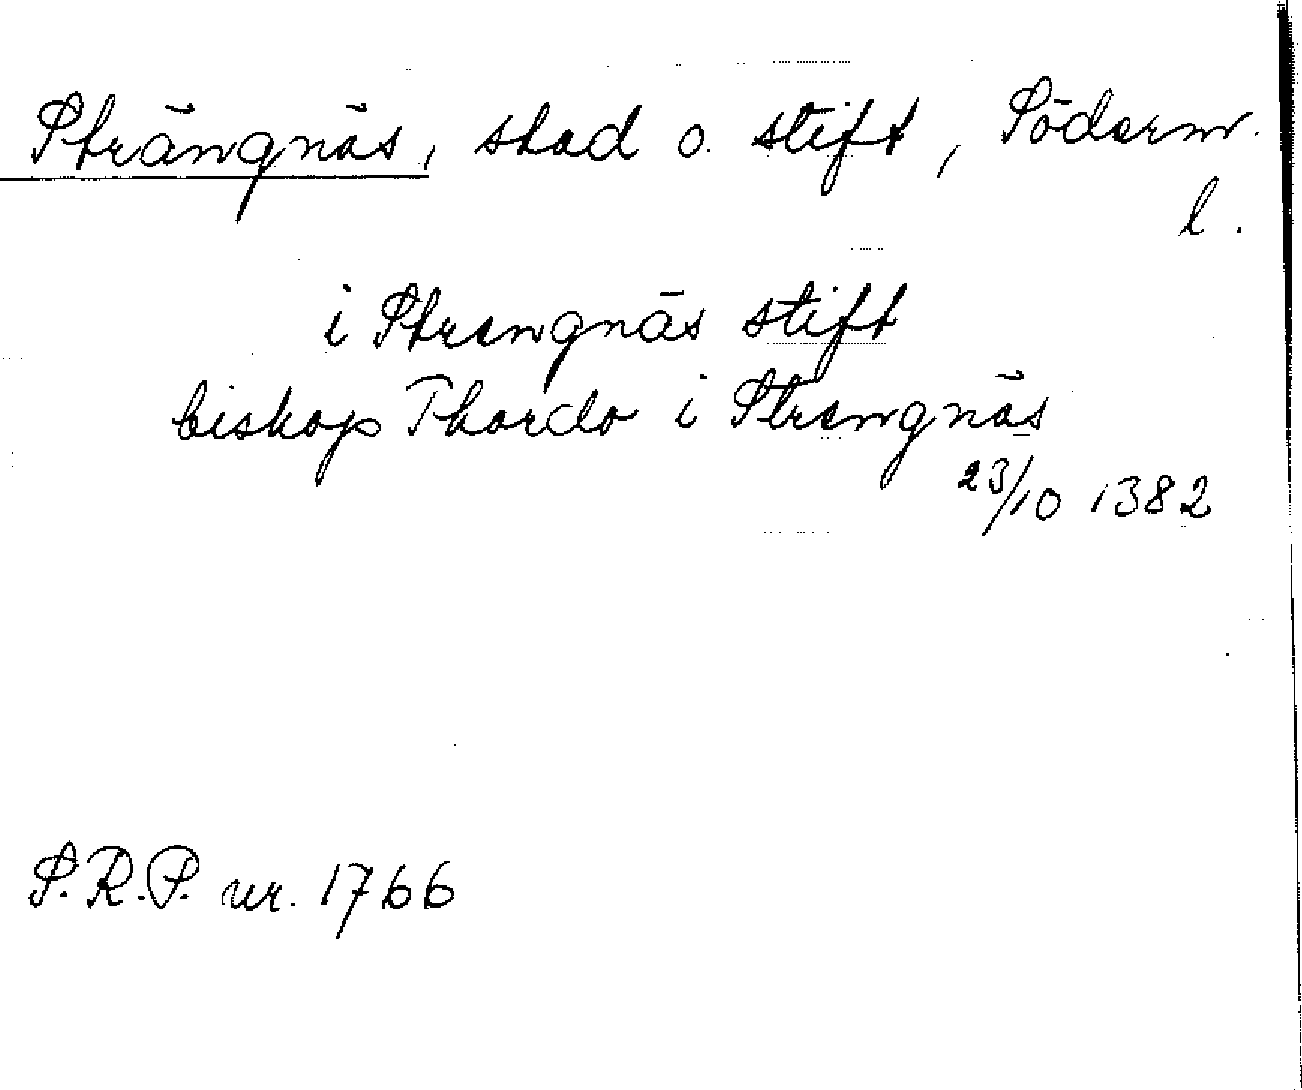 Strängnäs, stad o. stift, Söderm.
l.
i Strengnäs stift
biskop Thordo i Strengnäs
23/10 1382
S.R.P. nr. 1766